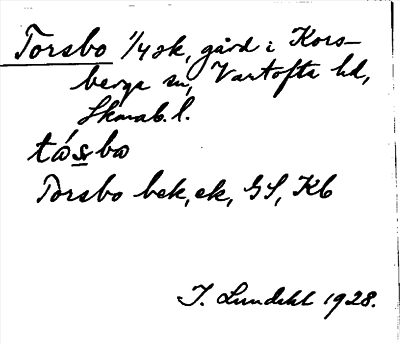 Torsbo 1/4 sk, gård i Kors-
berga sn, Vartofta hd,
Skarab. l.
tásbo
Torsbo bek, ek, GS, Kb
I. Lundahl 1928.